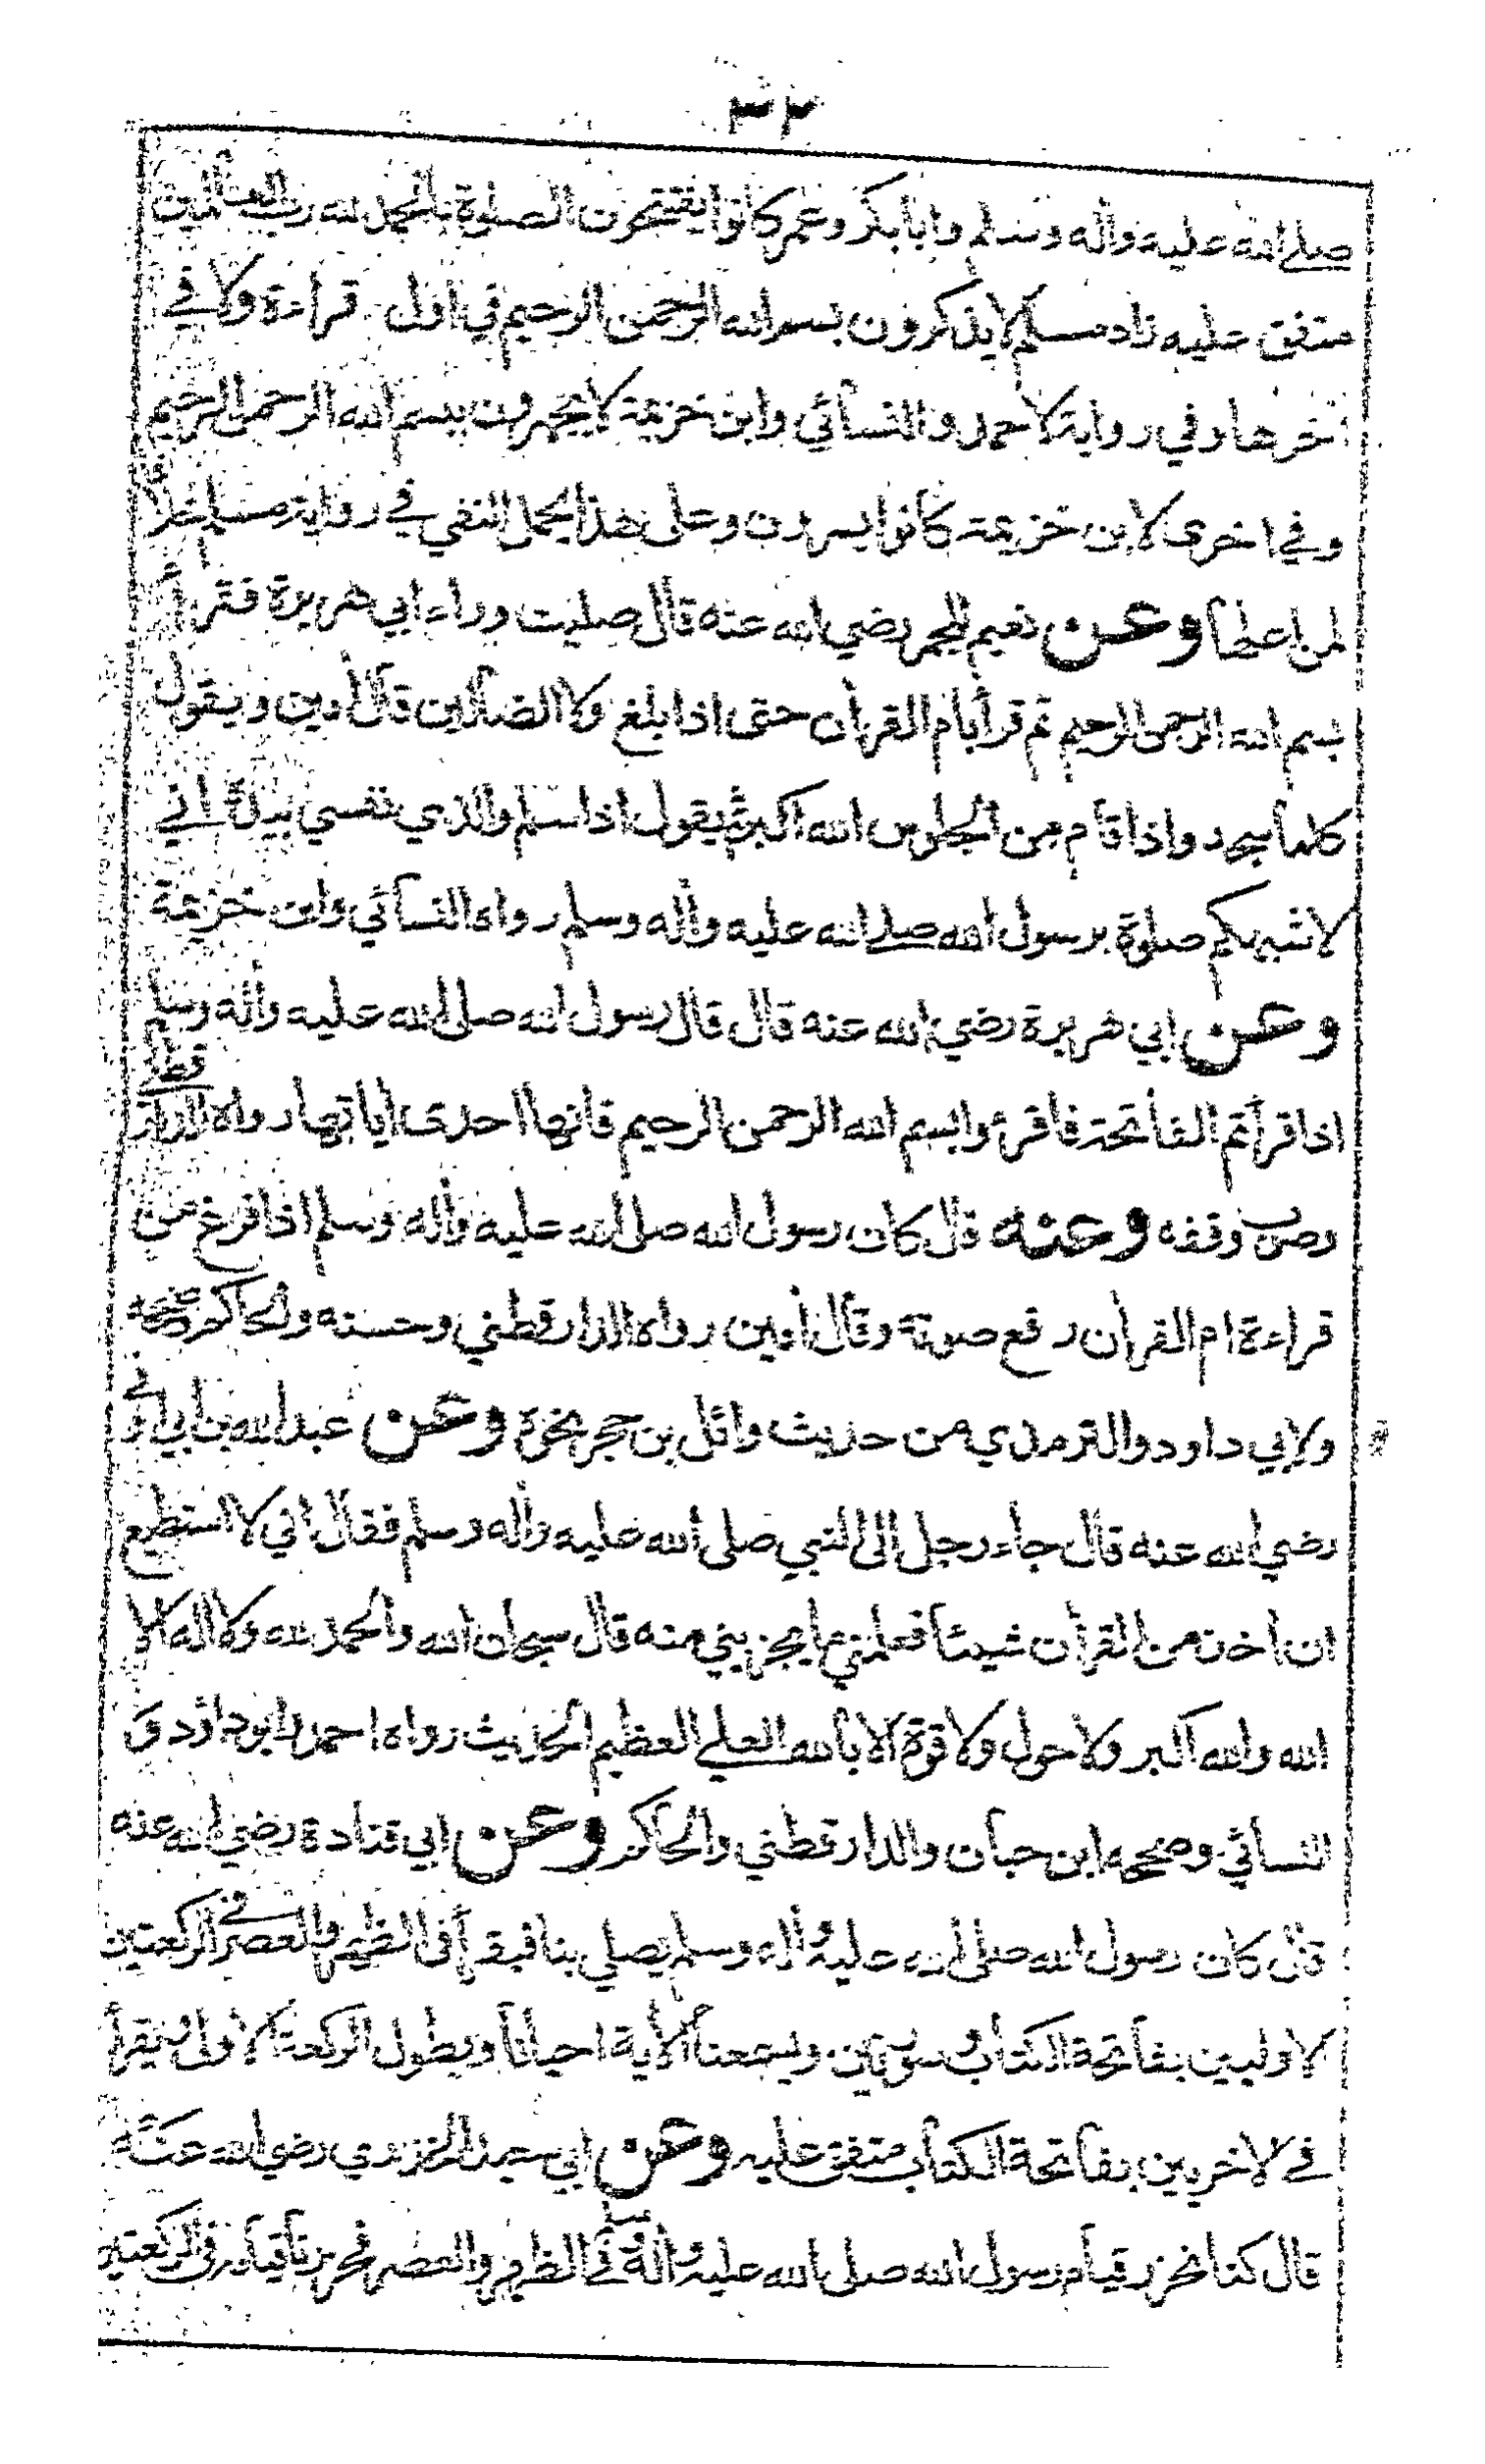 ٣٢
صلے الله عليه واٰله وسلم وابابكر وعمر كانوا يفتتحون الصلوة بالحمد لله رب العالمين
متفق عليه زاد مسلم لا يذكرون بسم الله الرحمن الرحيم في اول قراءة ولا في
اٰخرها وفي رواية لاحمد والنسائي وابن خزيمة لا يجهرون ببسم الله الرحمن الرحيم
وفي اخرى لابن خزيمة كانوا يسرون وعلى هذا يحمل النفي في رواية مسلم خلافا
لمن اعلها وعن نعيم المجمر رضي الله عنه قال صليت وراء ابي هريرة فقرأ
بسم الله الرحمن الرحيم ثم قرأ بام القراٰن حتى اذا بلغ ولا الضالين قال اٰمين ويقول
كلما سجد واذا قام من الجلوس الله اكبر ثم يقول اذا سلم والذي نفسي بيده اني
لاشبهكم صلوة برسول الله صلے الله عليه واٰله وسلم رواه النسائي وابن خزيمة
وعن ابي هريرة رضي الله عنه قال قال رسول الله صلى الله عليه واٰله وسلم
اذا قرأتم الفاتحة فاقرءوا بسم الله الرحمن الرحيم فانها احدى اٰياتها رواه الدارقطني
وصوب وقفه وعنه قال كان رسول الله صلى الله عليه واٰله وسلم اذا فرغ من
قراءة ام القراٰن رفع صوته وقال اٰمين رواه الدارقطني وحسنه والحاكم وصححه
ولابي داود والترمذي من حديث وائل بن حجر نحوه وعن عبد الله بن ابي اوفى
رضي الله عنه قال جاء رجل الى النبي صلى الله عليه واٰله وسلم فقال اني لا استطيع
ان اٰخذ من القراٰن شيئا فعلمني ما يجزيني منه قال سبحان الله والحمد لله ولا اله الا
الله والله اكبر ولا حول ولا قوة الا بالله العلي العظيم الحديث رواه احمد وابو داؤد و
النسائي وصححه ابن حبان والدارقطني والحاكم وعن ابي قتادة رضي الله عنه
قال كان رسول الله صلى الله عليه واٰله وسلم يصلي بنا فيقرأ في الظهر والعصر في الركعتين
الاوليين بفاتحة الكتاب وسورتين ويسمعنا الاٰية احيانا ويطول الركعة الاولى ويقرأ
في الاخريين بفاتحة الكتاب متفق عليه وعن ابي سعيد الخدري رضي الله عنه
قال كنا نحزر قيام رسول الله صلى الله عليه واٰله وسلم في الظهر والعصر فحزرنا قيامه في الركعتين